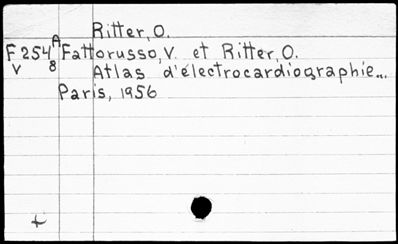 Ritter, O.
F254 A Fattorusso, V. et Ritter, O.
V 8 Atlas d'électrocardiographie...
Paris, 1956